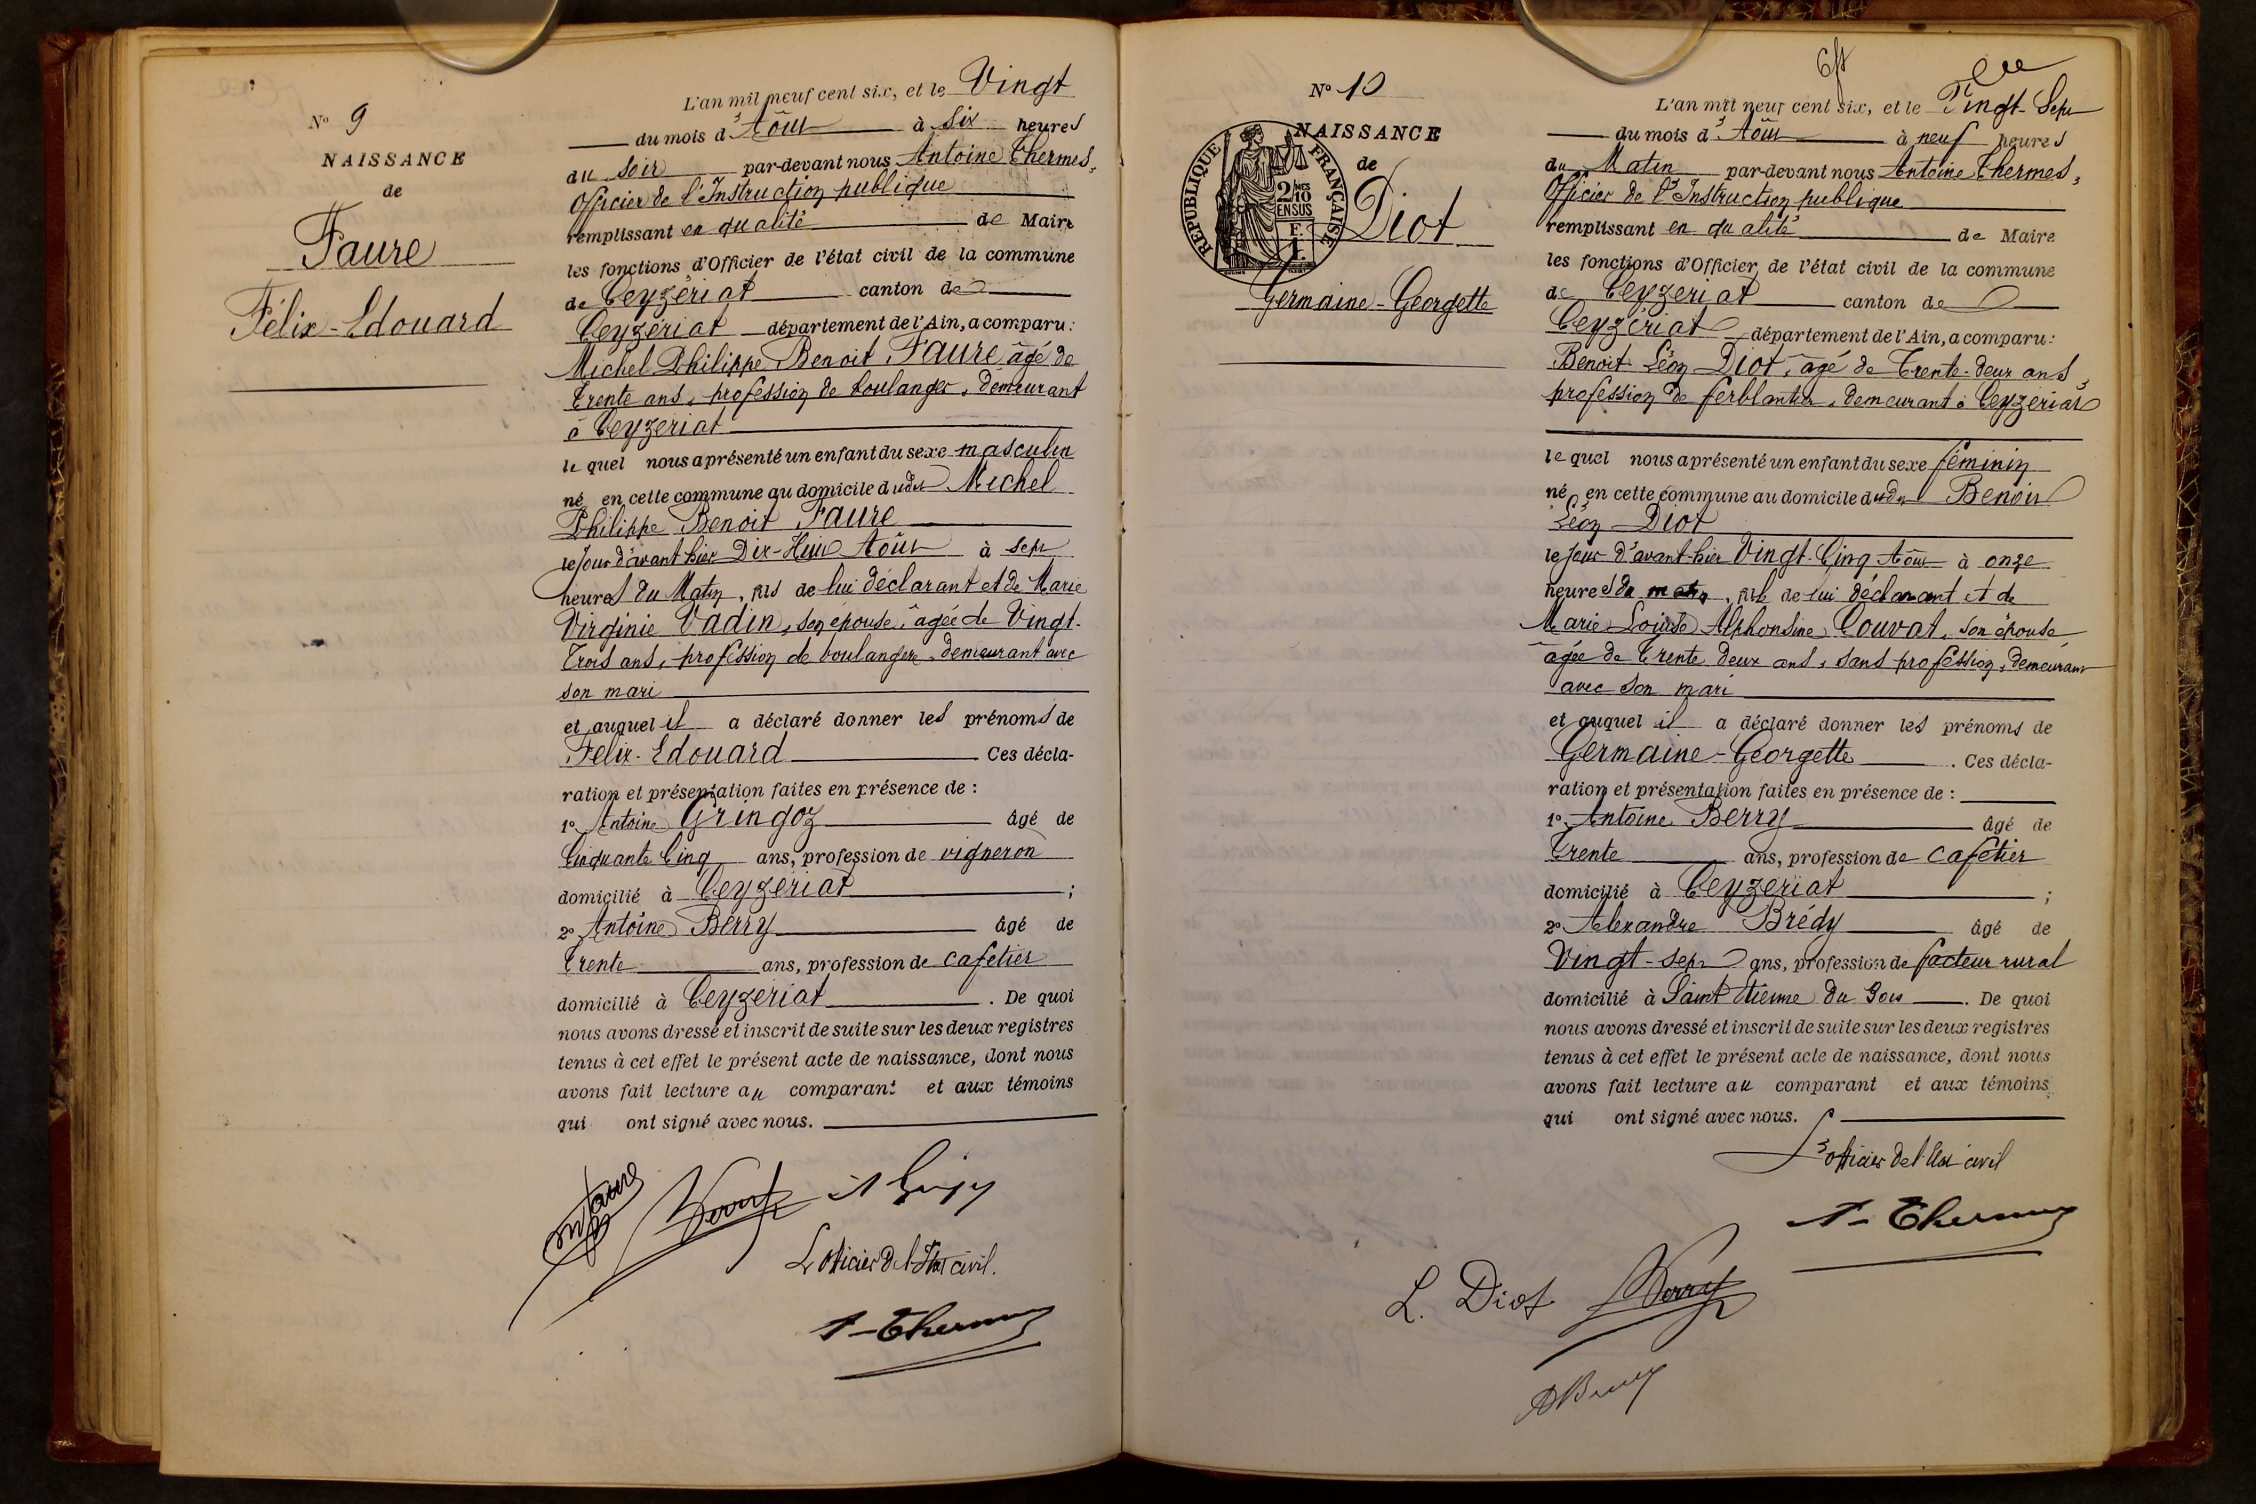 N° 9
NAISSANCE
de
Faure
Félix-Edouard
L'an mil neuf cent six, et le Vingt
du mois d'Août à Six heures
du soir par-devant nous Antoine Thermes,
Officier de l'Instruction publique
remplissant en qualité de Maire
les fonctions d'Officier de l'état civil de la commune
de Ceyzériat canton de
Ceyzériat département de l'Ain, a comparu :
Michel Philippe Benoit Faure âgé de
Trente ans, profession de boulanger, demeurant
à Ceyzériat
le quel nous a présenté un enfant du sexe masculin
né en cette commune au domicile dudit Michel
Philippe Benoit Faure
le jour d'avant hier Dix-Huit Août à sept
heures du Matin, fils de lui déclarant et de Marie
Virginie Vadin, son épouse, âgée de Vingt-
Trois ans, profession de boulangère, demeurant avec
son mari
et auquel il a déclaré donner les prénoms de
Félix-Edouard Ces décla-
ration et présentation faites en présence de :
1° Antoine Gringoz âgé de
Cinquante Cinq ans, profession de vigneron
domicilié à Ceyzériat ;
2° Antoine Berry âgé de
Trente ans, profession de cafetier
domicilié à Ceyzériat . De quoi
nous avons dressé et inscrit de suite sur les deux registres
tenus à cet effet le présent acte de naissance, dont nous
avons fait lecture au comparant et aux témoins
qui ont signé avec nous.
Faure Berry A
L'officier de l'Etat civil.
A-Thermes
N° 10
NAISSANCE
de
RÉPUBLIQUE FRANÇAISE
2/10 EN SUS
Diot
Germaine-Georgette
L'an mil neuf cent six, et le Vingt-Sept
du mois d'Août à neuf heures
du Matin par-devant nous Antoine Thermes,
Officier de l'Instruction publique
remplissant en qualité de Maire
les fonctions d'Officier de l'état civil de la commune
de Ceyzériat canton de
Ceyzériat département de l'Ain, a comparu :
Benoit Léon Diot, âgé de Trente-deux ans,
profession de ferblantier, demeurant à Ceyzériat
le quel nous a présenté un enfant du sexe féminin
né en cette commune au domicile dudit Benoit
Léon Diot
le jour d'avant-hier Vingt-Cinq Août à onze
heures du matin, fille de lui déclarant et de
Marie Louise Alphonsine Couvat, son épouse
âgée de Trente deux ans, sans profession, demeurant
avec son mari
et auquel il a déclaré donner les prénoms de
Germaine-Georgette . Ces décla-
ration et présentation faites en présence de :
1° Antoine Berry âgé de
Trente ans, profession de cafetier
domicilié à Ceyzériat ;
2° Alexandre Brédy âgé de
Vingt-sept ans, profession de facteur rural
domicilié à Saint Etienne du Bois . De quoi
nous avons dressé et inscrit de suite sur les deux registres
tenus à cet effet le présent acte de naissance, dont nous
avons fait lecture au comparant et aux témoins
qui ont signé avec nous.
L'officier de l'Etat civil
A-Thermes
L. Diot Berry